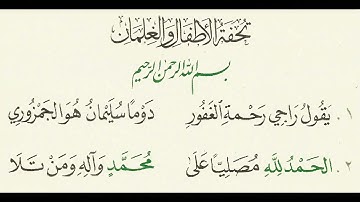 تحفة الأطفال والغلمان
بسم الله الرحمن الرحيم
١. يَقُولُ رَاجِي رَحْمَةِ الْغَفُورِ دَوْمًا سُلَيْمَانُ هُوَ الْجَمْزُورِي
٢. الْحَمْدُ لِلَّهِ مُصَلِّيًا عَلَى مُحَمَّدٍ وَآلِهِ وَمَنْ تَلَا